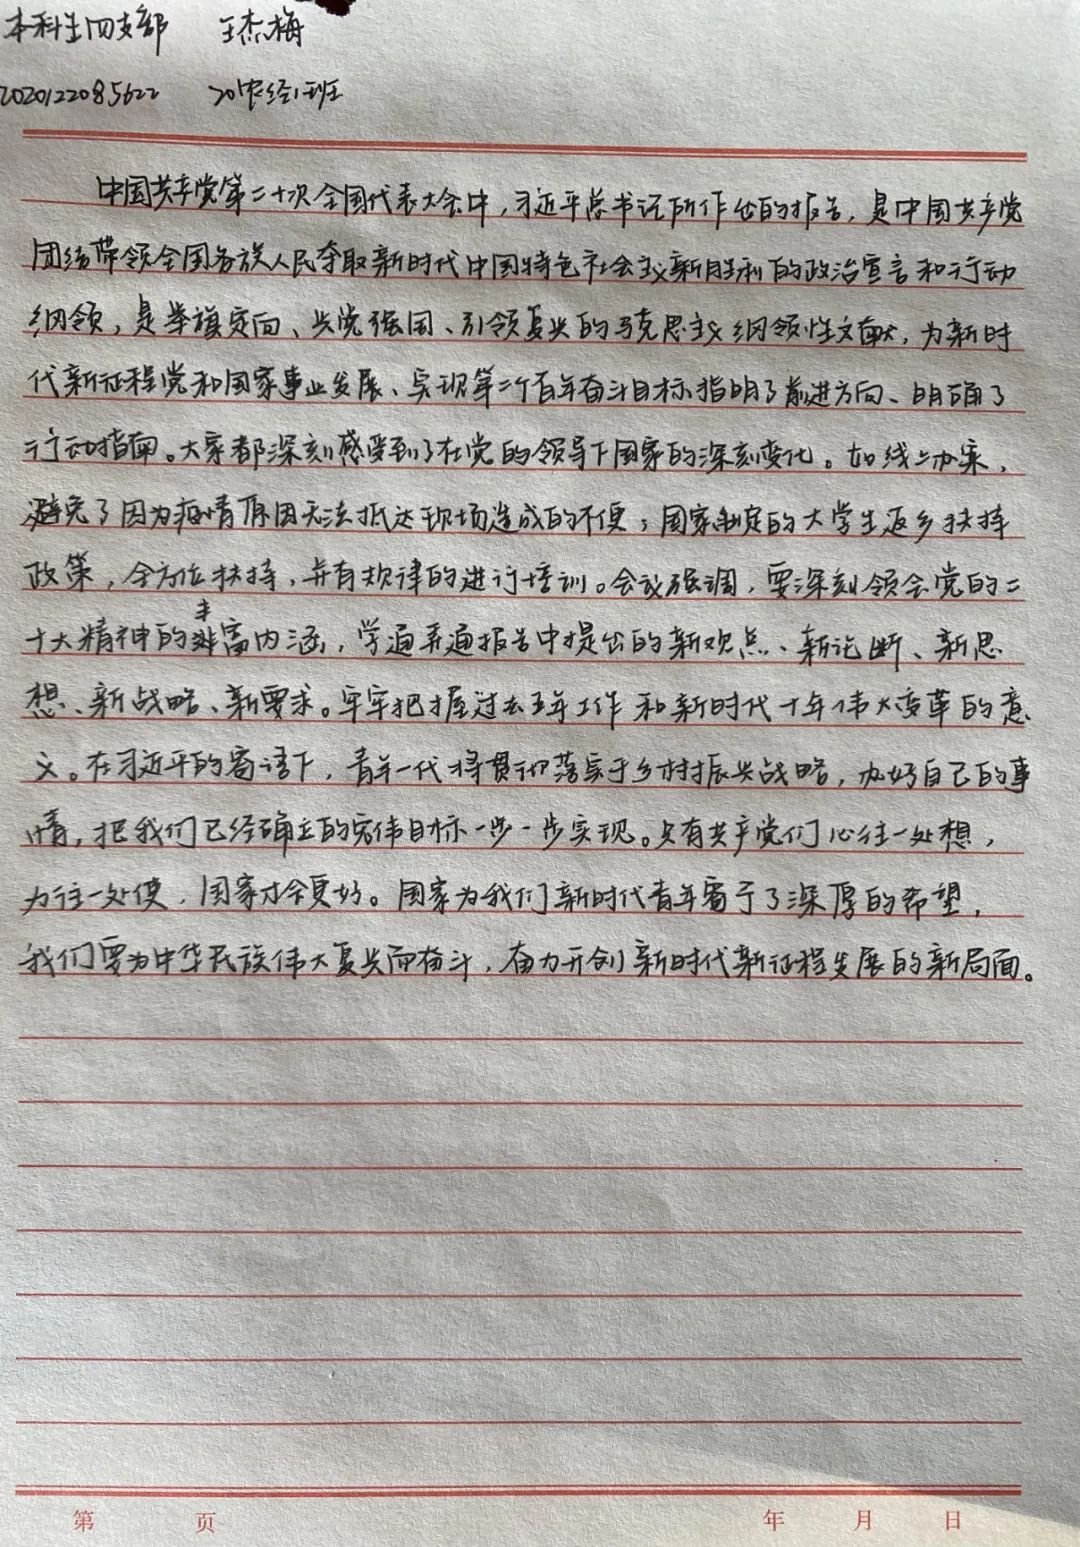 本科生四支部 王杰梅
2020122085622 20农经1班
中国共产党第二十次全国代表大会中，习近平总书记所作出的报告，是中国共产党
团结带领全国各族人民夺取新时代中国特色社会主义新胜利的政治宣言和行动
纲领，是举旗定向、兴党强国、引领复兴的马克思主义纲领性文献，为新时
代新征程党和国家事业发展、实现第二个百年奋斗目标指明了前进方向、明确了
行动指南。大家都深刻感受到了在党的领导下国家的深刻变化。如线上办案，
避免了因为疫情原因无法抵达现场造成的不便；国家制定的大学生返乡扶持
政策，全方位扶持，并有规律的进行培训。会议强调，要深刻领会党的二
十大精神的丰富内涵，学通弄通报告中提出的新观点、新论断、新思
想、新战略、新要求。牢牢把握过去五年工作和新时代十年伟大变革的意
义。在习近平的寄语下，青年一代将贯彻落实于乡村振兴战略，办好自己的事
情，把我们已经确立的宏伟目标一步一步实现。只有共产党们心往一处想，
力往一处使，国家才会更好。国家为我们新时代青年寄予了深厚的希望，
我们要为中华民族伟大复兴而奋斗，奋力开创新时代新征程发展的新局面。
第 页 年 月 日